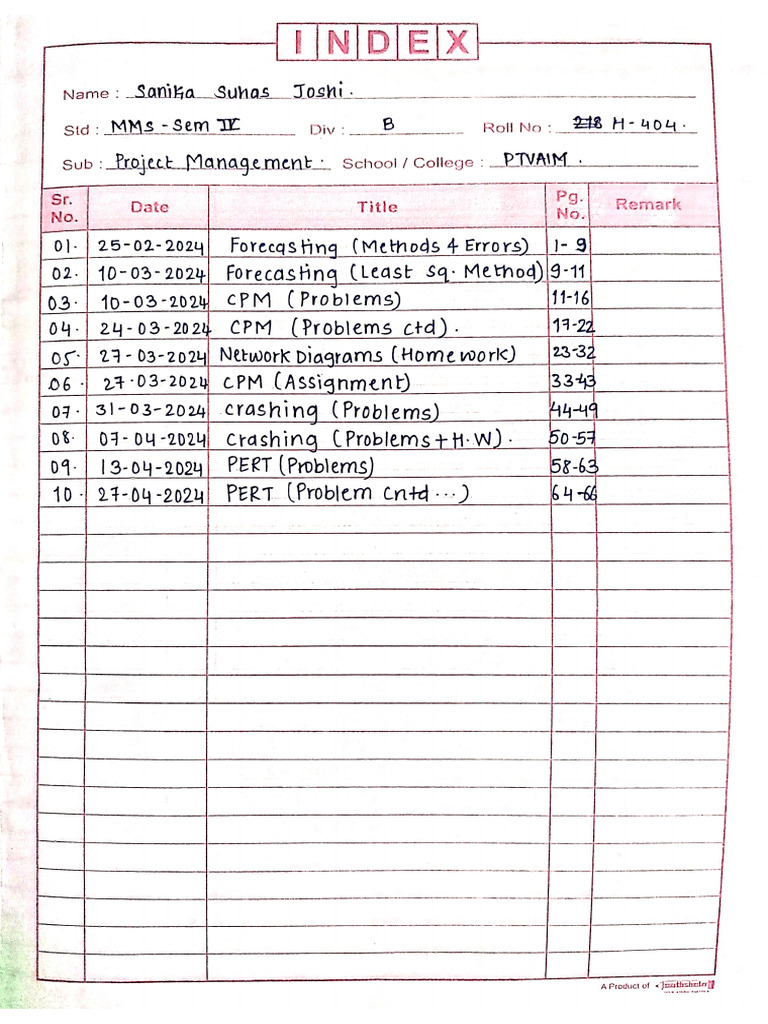 INDEX
Name : Sanika Suhas Joshi.
Std : MMS - Sem IV Div : B Roll No : 218 H-404.
Sub : Project Management. School / College : PTVAIM.
Sr. No. Date Title Pg. No. Remark
01. 25-02-2024 Forecasting (Methods & Errors) 1-9
02. 10-03-2024 Forecasting (Least Sq. Method) 9-11
03. 10-03-2024 CPM (Problems) 11-16
04. 24-03-2024 CPM (Problems ctd). 17-22
05. 27-03-2024 Network Diagrams (Homework) 23-32
06. 27-03-2024 CPM (Assignment) 33-43
07. 31-03-2024 Crashing (Problems) 44-49
08. 07-04-2024 Crashing (Problems + H.W). 50-57
09. 13-04-2024 PERT (Problems) 58-63
10. 27-04-2024 PERT (Problem Cntd ...) 64-66
A Product of